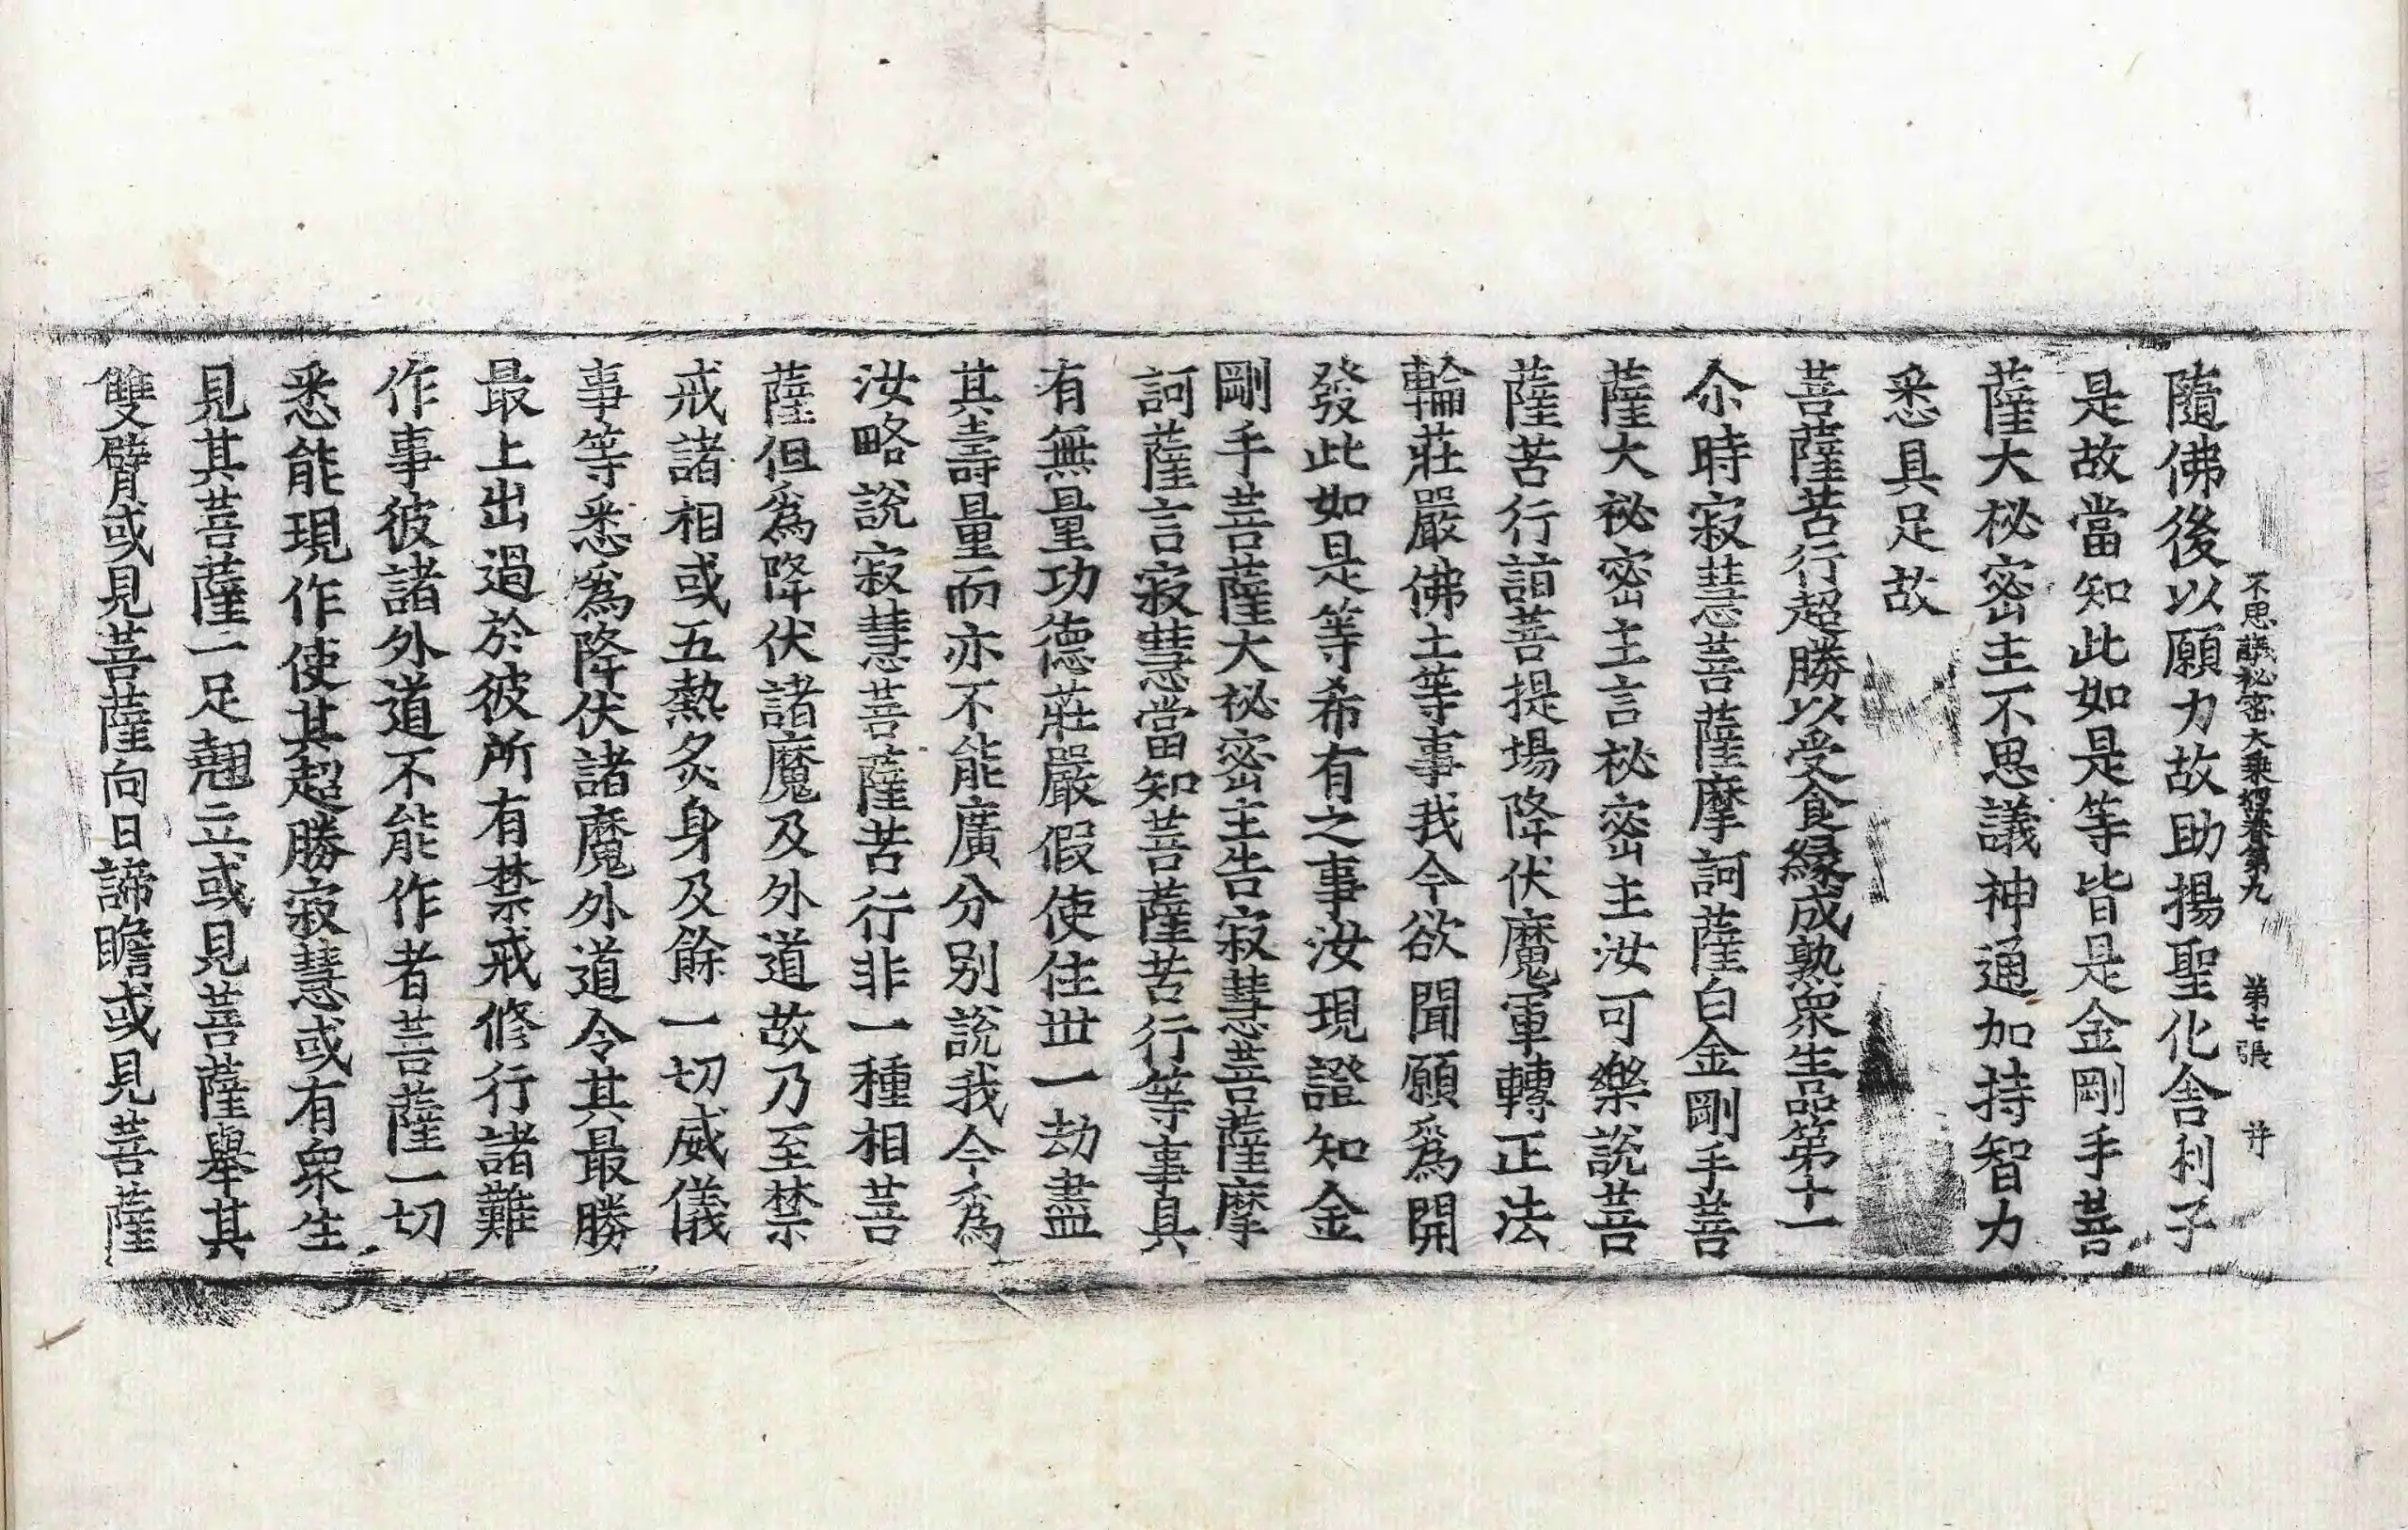 不思議秘密大乘經卷第九 第七張 井
隨佛後以願力故助揚聖化舍利子
是故當知此如是等皆是金剛手菩
薩大秘密主不思議神通加持智力
悉具足故
菩薩苦行超勝以受食緣成熟衆生品第十一
尒時寂慧菩薩摩訶薩白金剛手菩
薩大祕密主言祕密主汝可樂說菩
薩苦行詣菩提場降伏魔軍轉正法
輪莊嚴佛土等事我今欲聞願爲開
發此如是等希有之事汝現證知金
剛手菩薩大祕密主告寂慧菩薩摩
訶薩言寂慧當知菩薩苦行等事具
有無量功德莊嚴假使住世一劫盡
其壽量而亦不能廣分别說我今爲
汝略說寂慧菩薩苦行非一種相菩
薩但爲降伏諸魔及外道故乃至禁
戒諸相或五熱炙身及餘一切威儀
事等悉爲降伏諸魔外道令其最勝
最上出過於彼所有禁戒修行諸難
作事彼諸外道不能作者菩薩一切
悉能現作使其超勝寂慧或有衆生
見其菩薩一足翹立或見菩薩舉其
雙臂或見菩薩向日諦瞻或見菩薩